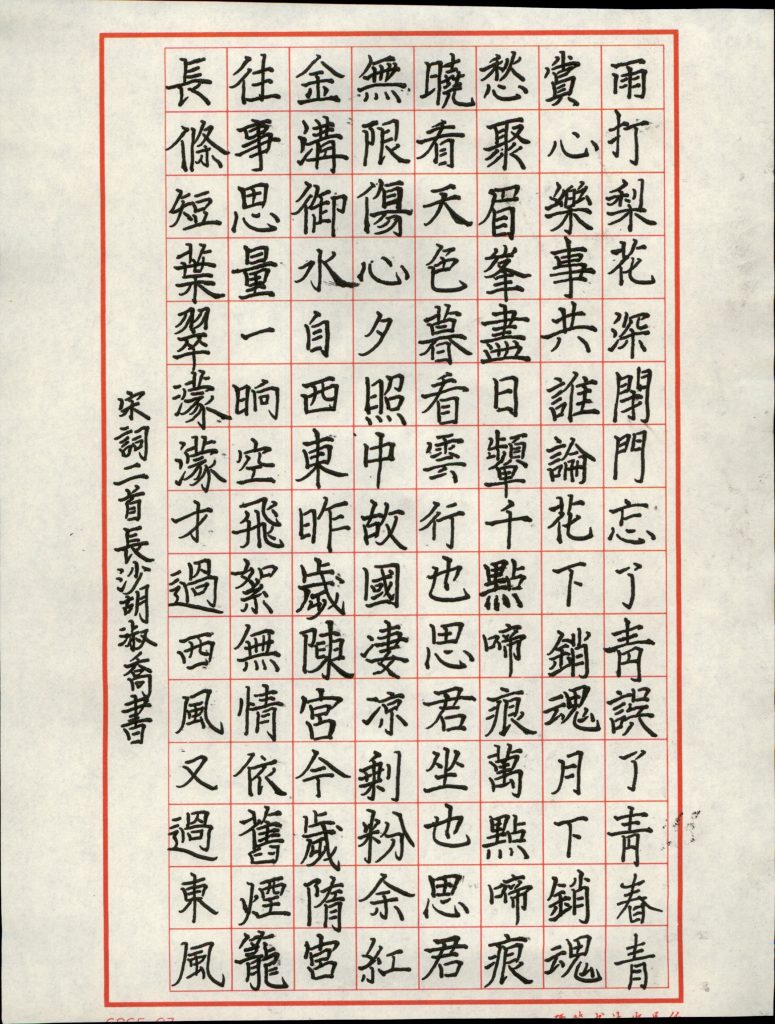 雨打梨花深閉門忘了青誤了青春青
賞心樂事共誰論花下銷魂月下銷魂
愁聚眉峯盡日顰千點啼痕萬點啼痕
曉看天色暮看雲行也思君坐也思君
無限傷心夕照中故國凄凉剩粉余紅
金溝御水自西東昨歲陳宮今歲隋宮
往事思量一晌空飛絮無情依舊煙籠
長條短葉翠濛濛才過西風又過東風
宋詞二首長沙胡淑喬書